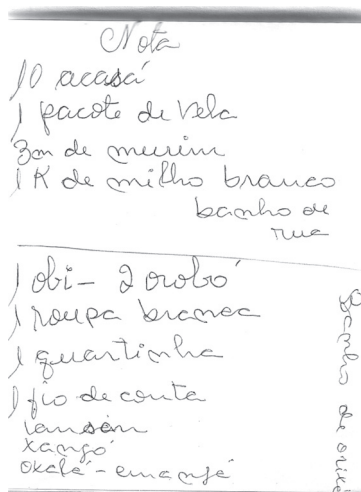 Nota
10 acasá
1 pacote de vela
3m de murim
1 K de milho branco
banho de
rua
1 obi - 2 orobó
1 roupa branca
1 quartinha
1 fio de conta
iansán
xangó
oxalé - emanjé
Banho de orixá